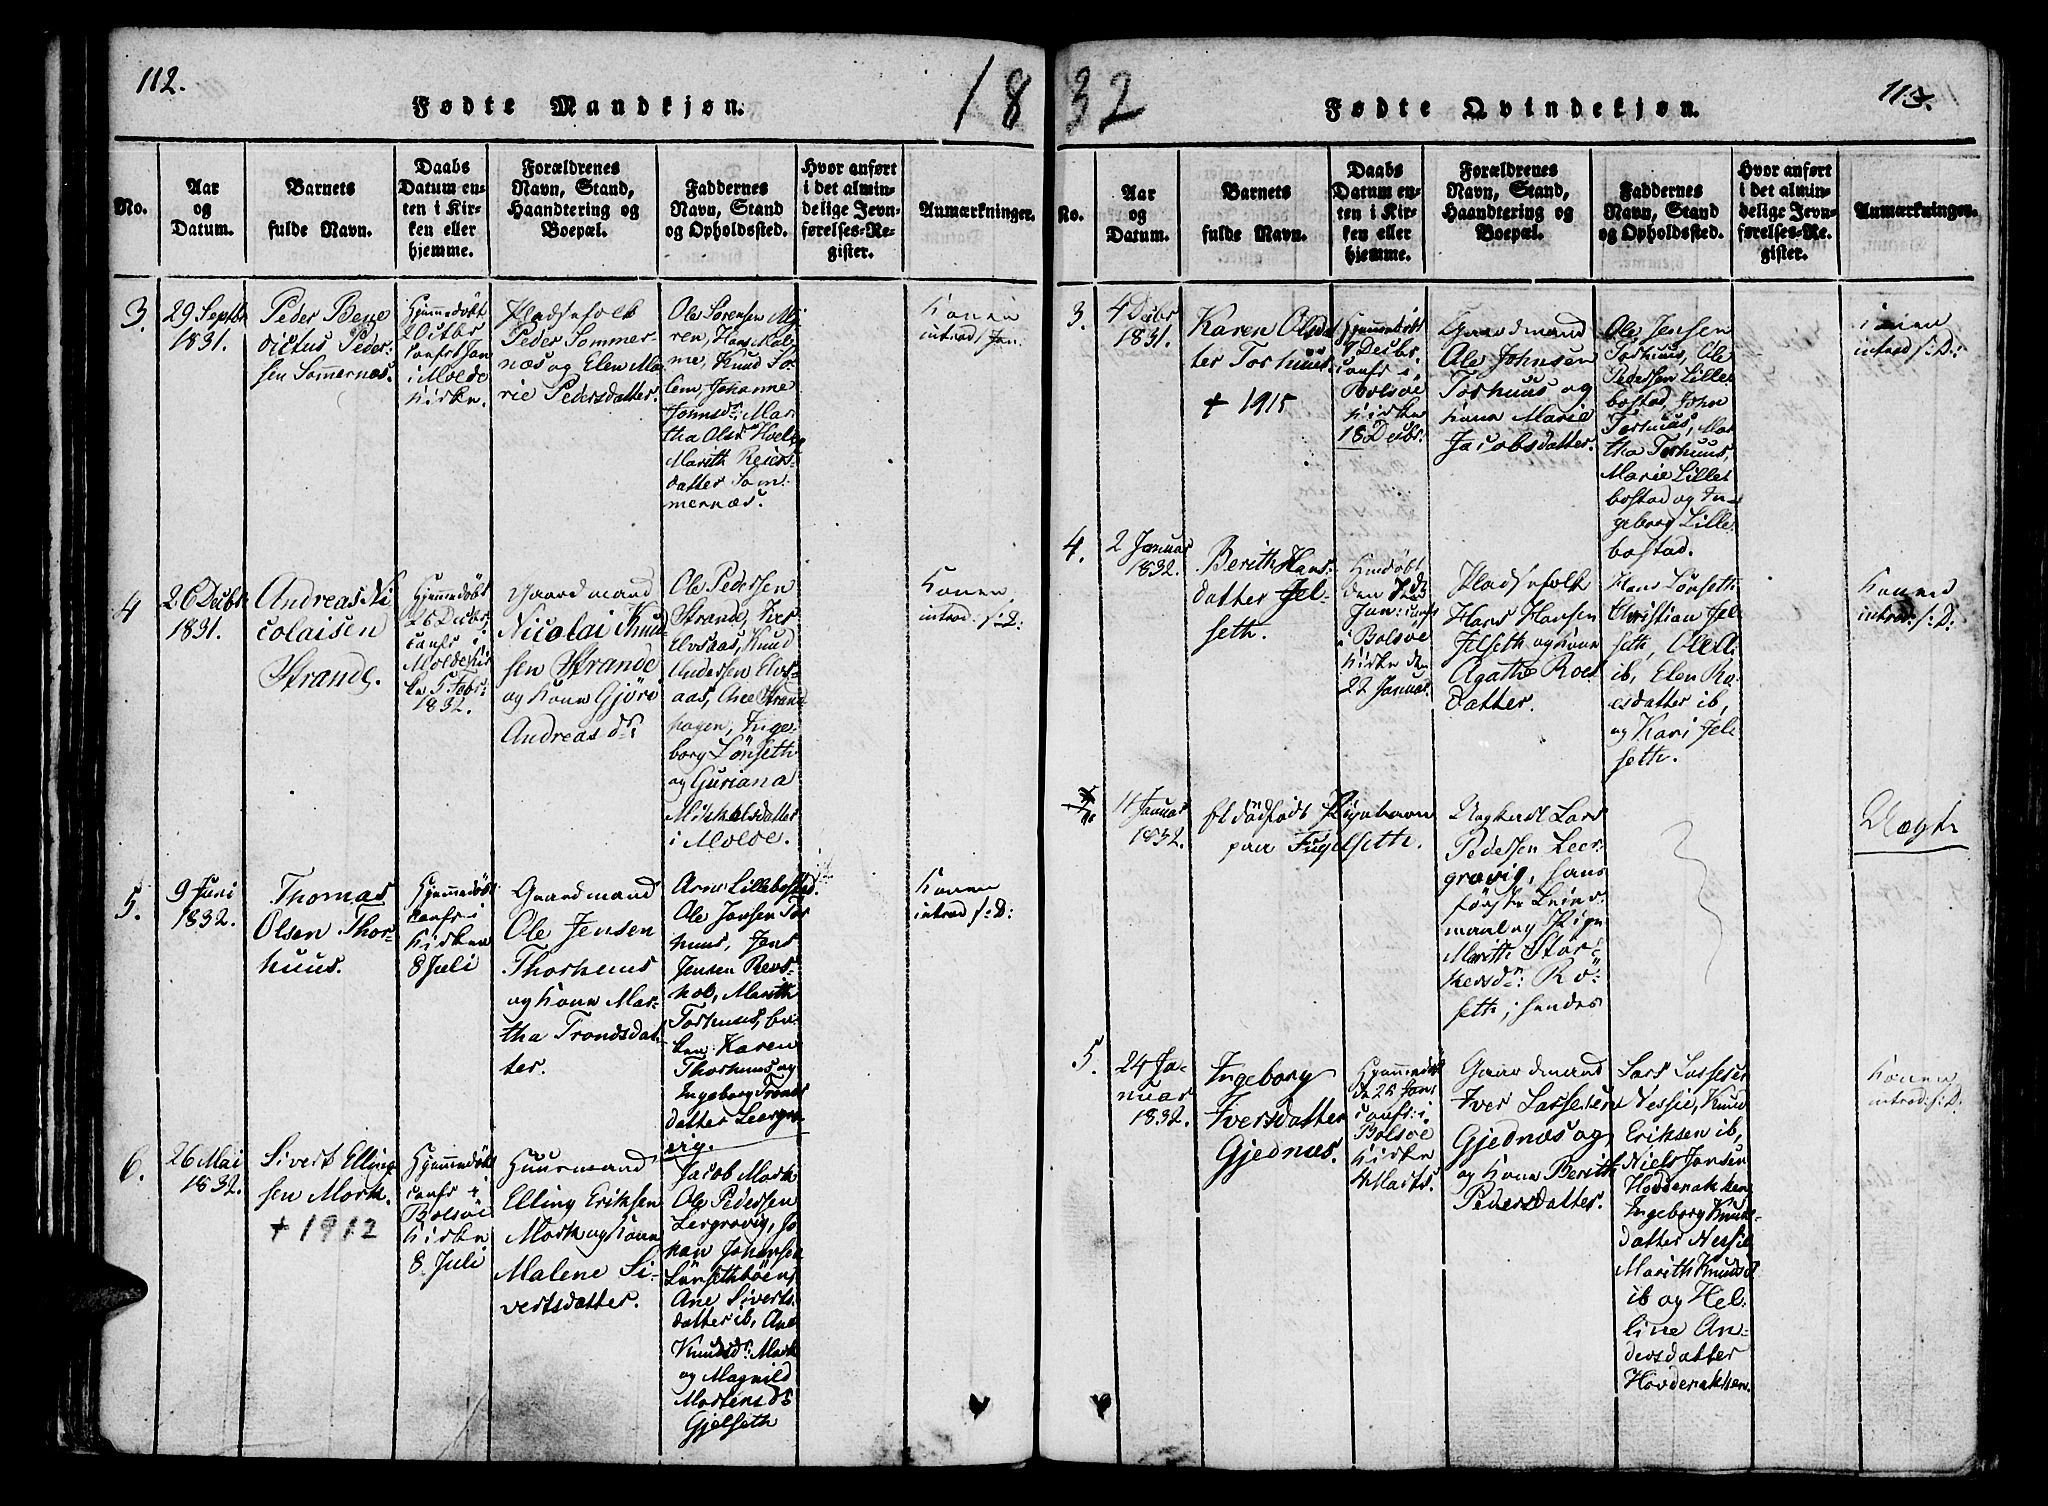 112.
Fødte Mandkjøn.
18
No.
Aar
og
Datum.
Barnets
fulde Navn.
Daabs
Datum en-
ten i Kir-
ken eller
hjemme.
Forældrenes
Navn, Stand,
Haandtering og
Boepæl.
Faddernes
Navn, Stand
og Opholdssted.
Hvor anført
i det almin-
delige Jevn-
førelses-Re-
gister.
Anmærkninger.
3.
29 Septbr
1831.
Peder Bene
dictus Peder-
sen Sommernæs.
Hjemmedøbt
2 Octbr
confr Jan
i Molde
Kirke.
Pladsefolk
Peder Sommer
næs og Elen Ma
rie Pedersdatter.
Ole Sørensen
ren, Hans
me, Knud So
lem, Johanne
Johnsdr: Mar
tha Olsdr
Marith Reiers-
datter Som
mernæs.
Konen
introd. Jan.
4
26 Decbr
1831.
Andreas Ni
colaisen
Strande.
Hjemmedøbt
26 Decbr
confr i
Molde Kir
ke 5 Febr:
1832.
Gaardmand
Nicolai Knud
sen Strande
og Kone Gjøre
Andreasdr:
Ole Pedersen
Strande,
Elvsaas, Knud
Andersen Elvs-
aas, Ane Strand
hagen, Inge-
borg Lönseth
og Guriana
Mikkelsdatter
i Molde.
Konen
introd. s: D:
5.
9 Juni
1832.
Thomas
Olsen Thor-
huus.
Hjemmedöbt
confr i
Kirken
8 Juli
Gaardmand
Ole Jensen
Thorhuus
og Kone Mar-
tha Trondsdat
ter.
Arne Lillebostad
Ole Jensen Tor
huus, Jens
Jensen Revs-
hol, Marith
Torhuus,
Karen
Thorhuus og
Ingeborg Tronds
datter Leergro
vig.
Konen
introd s: D:
6.
26 Mai
1832.
Sivert Elling
sen Mork.
+ 1912
Hjemmedöbt
confr i
Bolsöe
Kirke
8 Juli
Huusmand
Elling Eriksen
Mork og Kone
Malene Si-
vertsdatter.
Jacob Mork
Ole Pedersen
Lergrovig, Jo
han Johansen
Lönsethböen,
Ane Siverts-
datter ib, Ane
Knudsdr: Mork
og Magnild
Mortensdr
Gjelseth
32
Fødte Qvindekjøn.
113.
No.
Aar
og
Datum.
Barnets
fulde Navn.
Daabs
Datum en-
ten i Kir-
ken eller
hjemme.
Forældrenes
Navn, Stand,
Haandtering og
Boepæl.
Faddernes
Navn, Stand
og Opholdssted.
Hvor anført
i det almin-
delige Jevn-
førelses-Re-
gister.
Anmærkninger.
3.
4 Decbr
1831.
Karen Olsdat
ter Torhuus.
+ 1915
Hjemmedöbt
9 Decbr.
confr i
Bolsöe
Kirke
18 Decbr.
Gaardmand
Ole Johnsen
Torhuus og
Kone Marie
Jacobsdatter.
Ole Jensen
Torhuus, Ole
Pedersen Lille
bostad, John
Torhuus, Mar
tha Torhuus,
Marie Lille
bostad og In-
geborg Lille
bostad.
Konen
introd s: D:
4.
2 Januar
1832.
Berith Hans
datter Jel-
seth.
den 7de
Jan: confr
i Bolsöe
Kirke den
22 Januar.
Pladsefolk
Hans Hansen
Jelseth og Kone
Agathe Roes
datter.
Hans Lönseth
Christian Jel
seth, Ole
ib, Elen Ro-
esdatter ib,
og Kari Jel
seth.
Konen
introd. s: D:
11 Januar
1832.
et dödfödt Pigebarn
paa Fugelseth.
Ungkarl Lars
Pedersen Leer-
grovig, hans
förste Leier-
maal og Pige
Marith Stor-
kersdr: Rö-
seth, hendes
Uægte
5.
24 Ja-
nuar
1832.
Ingeborg
Iversdatter
Gjednæs.
Hjemmedöbt
d 26 Jan
confr: i
Bolsöe
Kirke
4 Marts.
Gaardmand
Iver Lassesen
Gjednæs og
og Kone Berith
Pedersdatter.
Lars Lassesen
Nessie, Knud
Eriksen ib,
Niels Jensen
Hovdenakken
Ingeborg Knuds-
datter Nessie
Marith Knudsd
ib og Hel-
line An-
dersdatter
Hovdenakken.
Konen
introd: s: D: